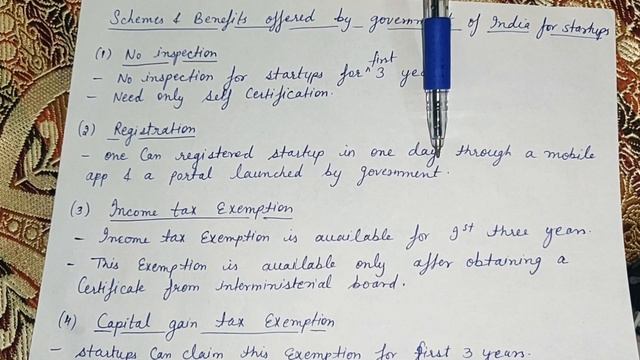 Schemes & Benefits offered by government of India for startups
(1) No inspection
- No inspection for startups for first 3
- Need only self Certification.
(2) Registration
- one Can registered startup in one day through a mobile
app & a portal launched by government.
(3) Income tax Exemption
- Income tax Exemption is available for Ist three years.
- This Exemption is available only after obtaining a
Certificate from interministerial board.
(4) Capital gain tax Exemption
- startups Can claim this Exemption for first 3 years.